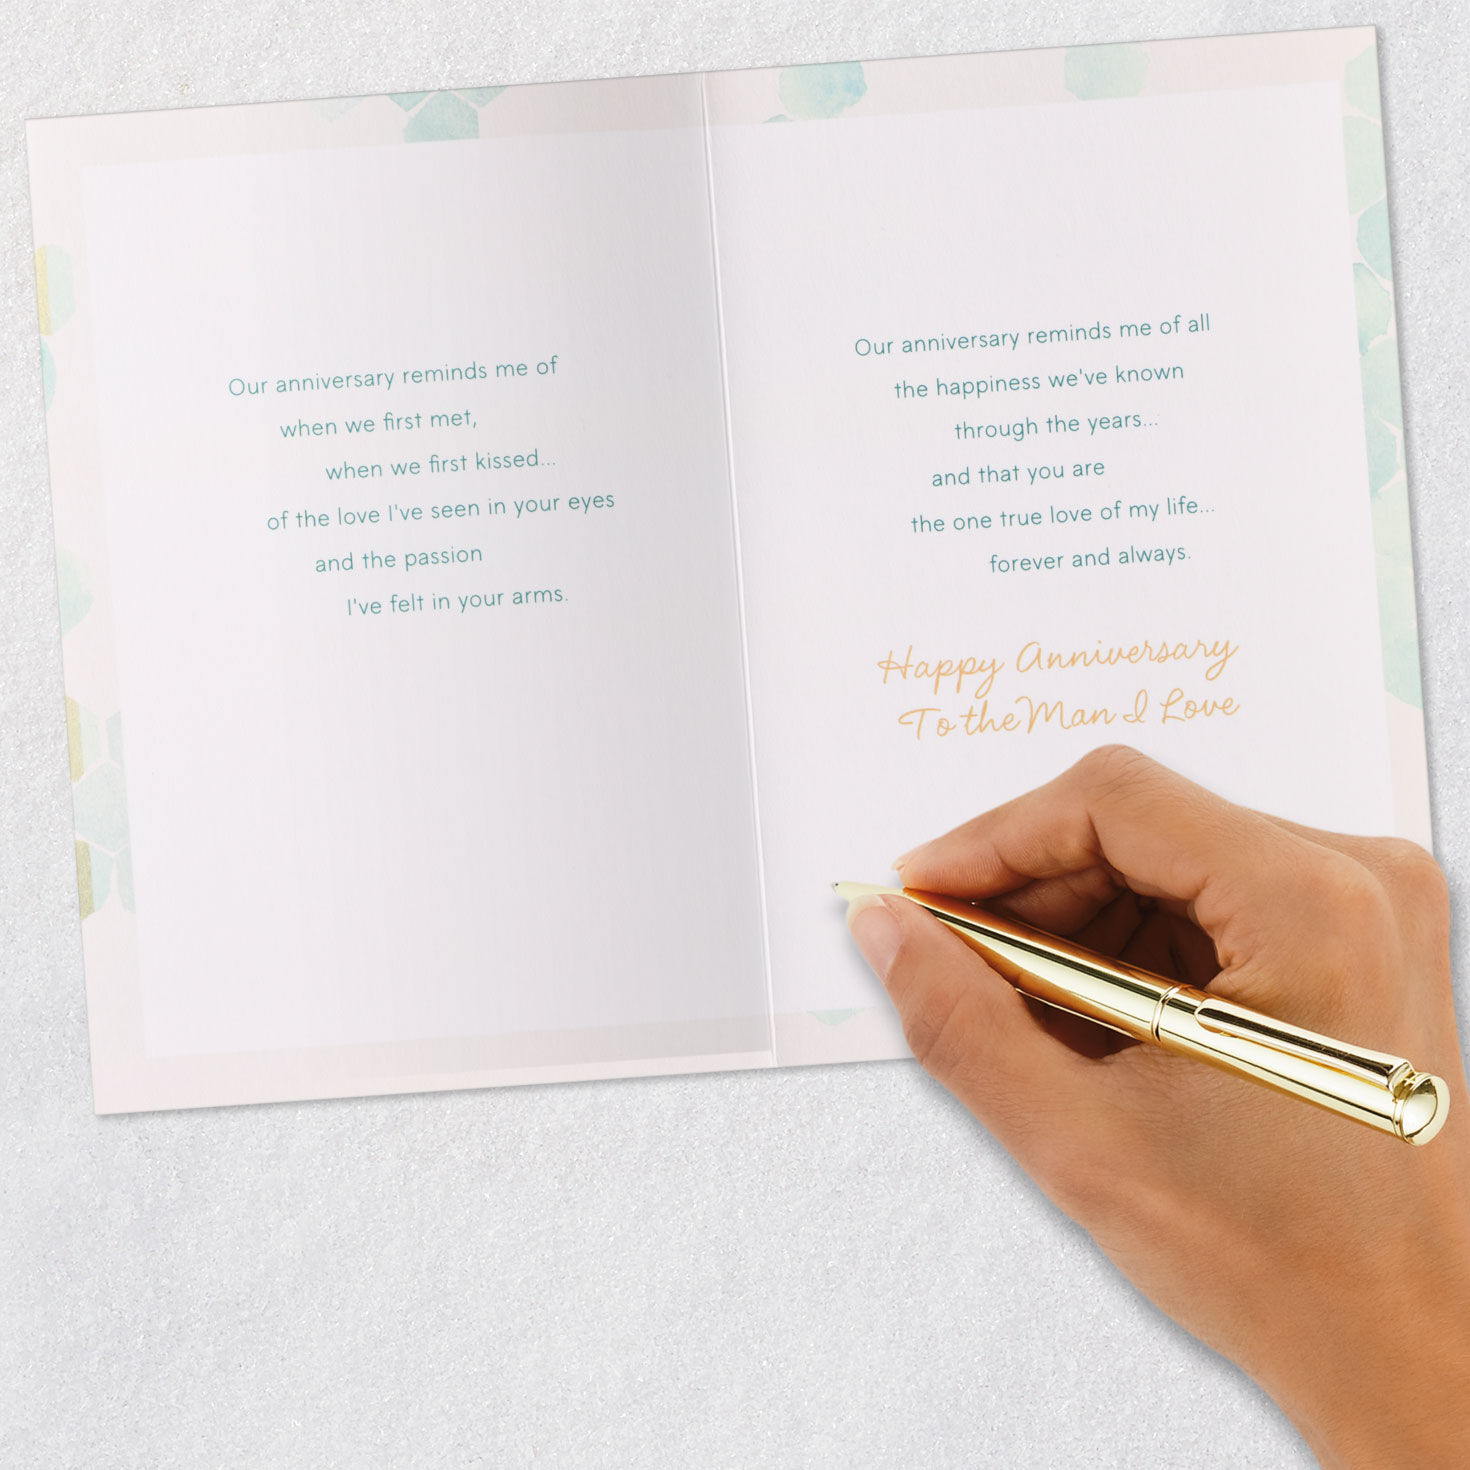 Our anniversary reminds me of
when we first met,
when we first kissed...
of the love I've seen in your eyes
and the passion
I've felt in your arms.
Our anniversary reminds me of all
the happiness we've known
through the years...
and that you are
the one true love of my life...
forever and always.
Happy Anniversary
To the Man I Love